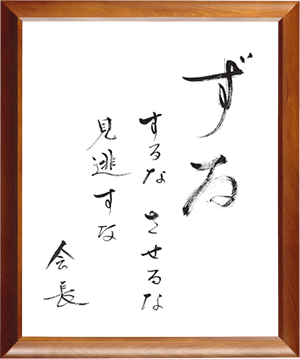 ずる
するな させるな
見逃すな
会長